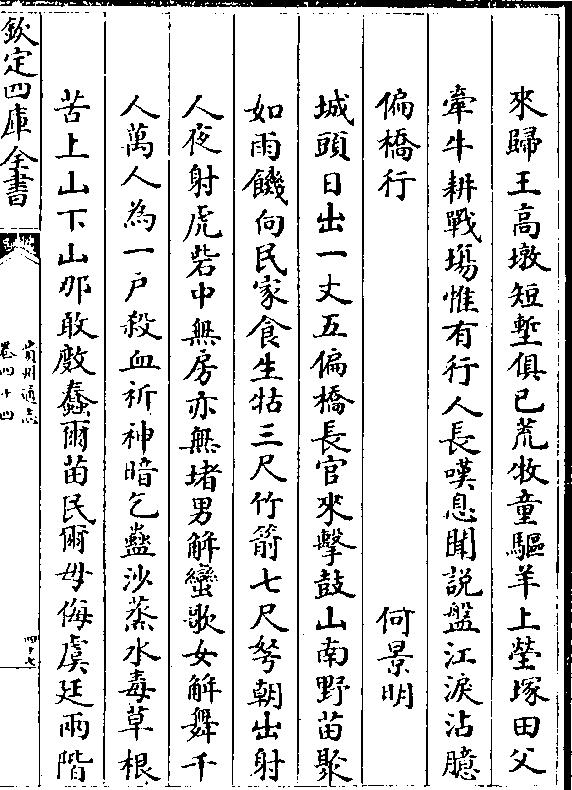 來歸王高墩短塹俱已荒牧童驅羊上塋塚田父
牽牛耕戰塲惟有行人長嘆息聞説盤江淚沾臆
偏橋行　何景明
城頭日出一丈五偏橋長官來擊鼓山南野苗聚
如雨饑向民家食生牯三尺竹箭七尺弩朝出射
人夜射虎砦中無房亦無堵男解蠻歌女解舞千
人萬人為一户殺血祈神暗乞蠱沙蒸水毒草根
苦上山下山那敢數蠢爾苗民爾毋侮虞廷兩階
欽定四庫全書
貴州通志
卷四十四
四十七